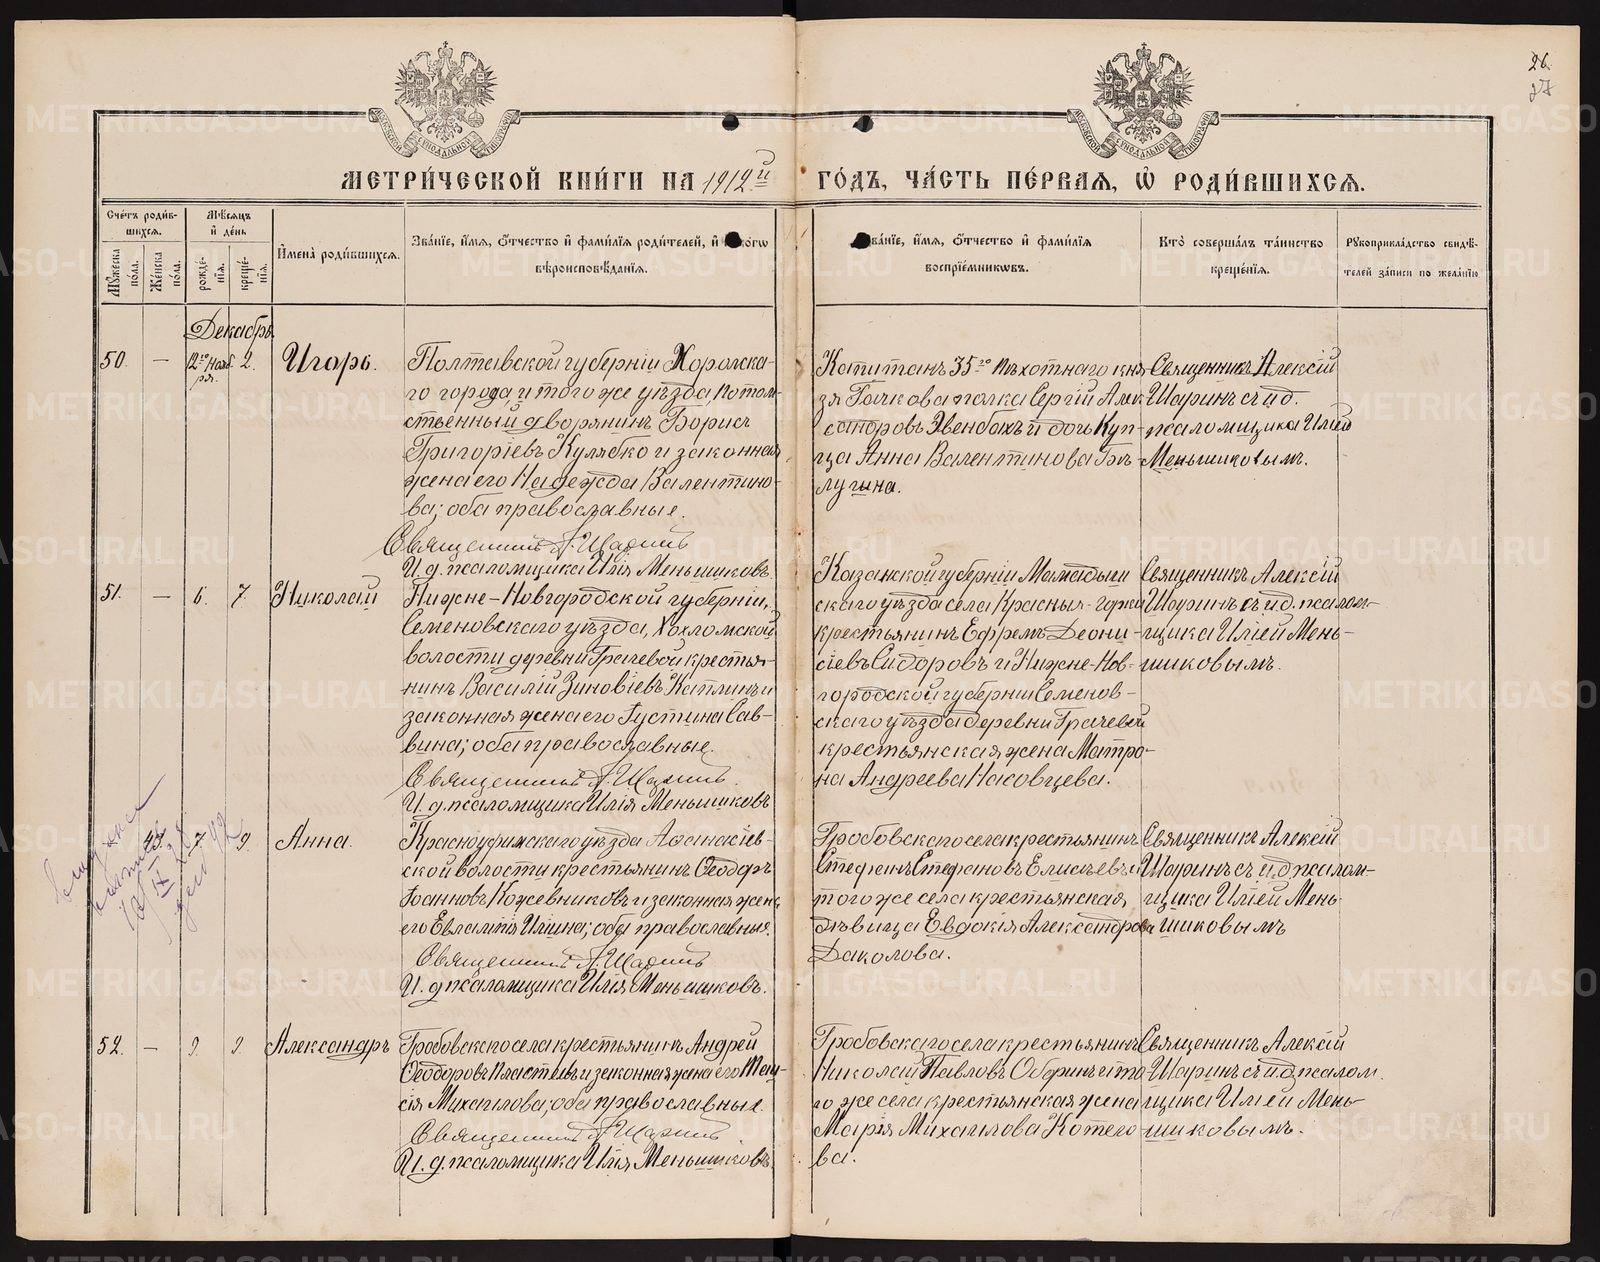 26.
27
МЕТРИ́ЧЕСКОЙ КНИ́ГИ НА 1912й ГО́ДЪ, ЧА́СТЬ ПЕ́РВАЯ, Ѡ҆ РОДИ́ВШИХСЯ.
Сче́тъ роди́в-
шихся.
Мѹ́жеска
по́ла.
Же́нска
по́ла.
Мѣ́сяцъ
и҆ де́нь
рожде́-
нія.
креще́-
нія.
И҆мена̀ роди́вшихся.
Зва́ніе, и҆́мя, ѻ҆́тчество и҆ фами́лія роди́телей, и҆
вѣроисповѣ́данія.
и҆́мя, ѻ҆́тчество и҆ фами́лія
воспріе́мникѡвъ.
Кто̀ соверша́лъ та́инство
креще́нія.
Рѹкоприкла́дство свидѣ́-
телей за́писи по жела́нію
Декабрь
50.
—
12го Нояб
ря.
2.
Игорь.
Полтавской губерніи Хоролска-
го города, и того же уѣзда, потом-
ственный дворянинъ Борисъ
Григоріевъ Кулябко и законная
жена его Надежда Валентино-
ва; оба православные.
Священникъ А. Шаринъ
И. д. псаломщика Илія Меньшиковъ
Капитанъ 35го пѣхотнаго кня
зя Горчакова полка Сергій Алек
сандровъ Эвенбахъ и дочь Куп-
ца Анна Валентинова Бѣ-
лугина.
Священникъ Алексій
Шаринъ съ и. д.
псаломщика Иліей
Меньшиковымъ.
51.
—
6.
7.
Николай
Нижне-Новгородской губерніи,
Семеновскаго уѣзда, Хохломской
волости деревни Грачевой крестья-
нинъ Василій Зиновіевъ Катинъ и
законная жена его Іустина Сав-
вина; оба православные.
Священникъ А. Шаринъ.
И. д. псаломщика Илія Меньшиковъ
Казанской губерніи Мамадыш
скаго уѣзда села Красныя-Горки
крестьянинъ Ефремъ Деони-
сіевъ Сидоровъ и Нижне-Нов-
городской губерніи Семенов-
скаго уѣзда деревни Грачевой
крестьянская жена Матро-
на Андреева Насовцева.
Священникъ Алексій
Шаринъ съ и. д. псалом-
щика Иліей Мень-
шиковымъ.
43.
7.
9.
Анна.
Красноуфимскаго уѣзда Афанасіев-
ской волости крестьянинъ Ѳеодоръ
Іоанновъ Кожевниковъ и законная жена
его Евлампія Иліина; оба православные.
Священникъ А. Шаринъ
И. д. псаломщика Илія Меньшиковъ.
Гробовскаго села крестьянинъ
Стефанъ Стефановъ Елисѣевъ и
того же села крестьянская
дѣвица Евдокія Александрова
Даколова.
Священникъ Алексій
Шаринъ съ и. д. псалом-
щика Иліей Мень-
шиковымъ
52.
—
9.
9.
Александръ
Гробовскаго села крестьянинъ Андрей
Ѳеодоровъ Пластевъ и законная жена его Таи-
сія Михаилова; оба православные.
Священникъ А. Шаринъ.
И. д. псаломщика Илія Меньшиковъ.
Гробовскаго села крестьянинъ
Николай Павловъ Обринъ и то
го же села крестьянская жена
Марія Михаилова Котего-
ва.
Священникъ Алексій
Шаринъ съ и. д. псалом
щика Иліей Мень-
шиковымъ.